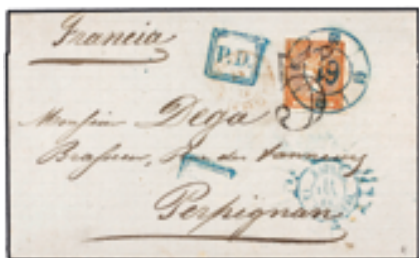 Francia
P.D.
9
Monsieur Dega
Brasseur, Rue des Tanneurs
Perpignan